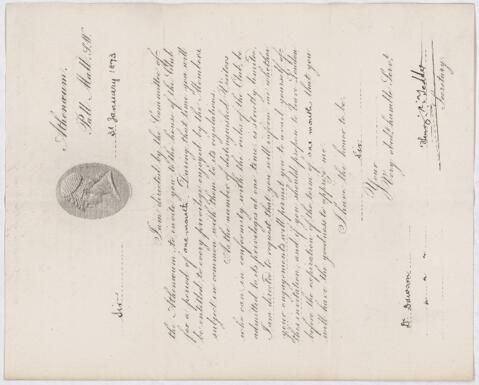 Athenaeum.
Pall Mall. S.W.
31 January 1893
Sir,
I am directed by the Committee of
the Athenaeum, to invite you to the house of the Club
for a period of one month. During that time you will
be entitled to every privilege enjoyed by the Members
subject in common with them to its regulations.
As the number of distinguished Visitors
who can in conformity with the rules of the Club be
admitted to its privileges at one time is strictly limited,
I am directed to request that you will inform me whether
your engagements will permit you to avail yourself of
this invitation, and if you should propose to leave London
before the expiration of the term of one month that you
will have the goodness to apprize me
I have the honor to be,
Sir,
Your
Very obedt. humble Servt.
Henry R. Tedder
Secretary.
Dr. Dawson